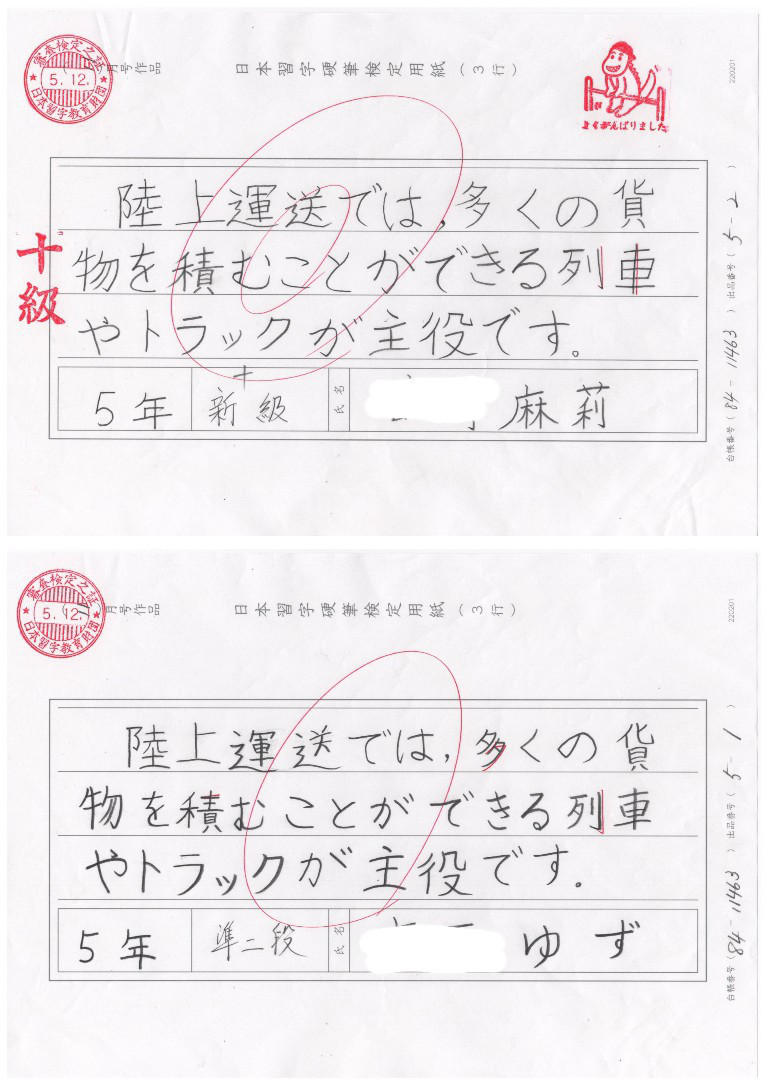 審査検定之証
5.12.
日本習字教育財団
月号作品
日本習字硬筆検定用紙(3行)
よくがんばりました
220201
十級
陸上運送では,多くの貨
物を積むことができる列車
やトラックが主役です。
5年
新級
十
氏名
麻莉
台帳番号(84-11463)出品番号(5-2)
審査検定之証
5.12.
日本習字教育財団
月号作品
日本習字硬筆検定用紙(3行)
220201
陸上運送では,多くの貨
物を積むことができる列車
やトラックが主役です。
5年
準二段
氏名
ゆず
台帳番号(84-11463)出品番号(5-1)